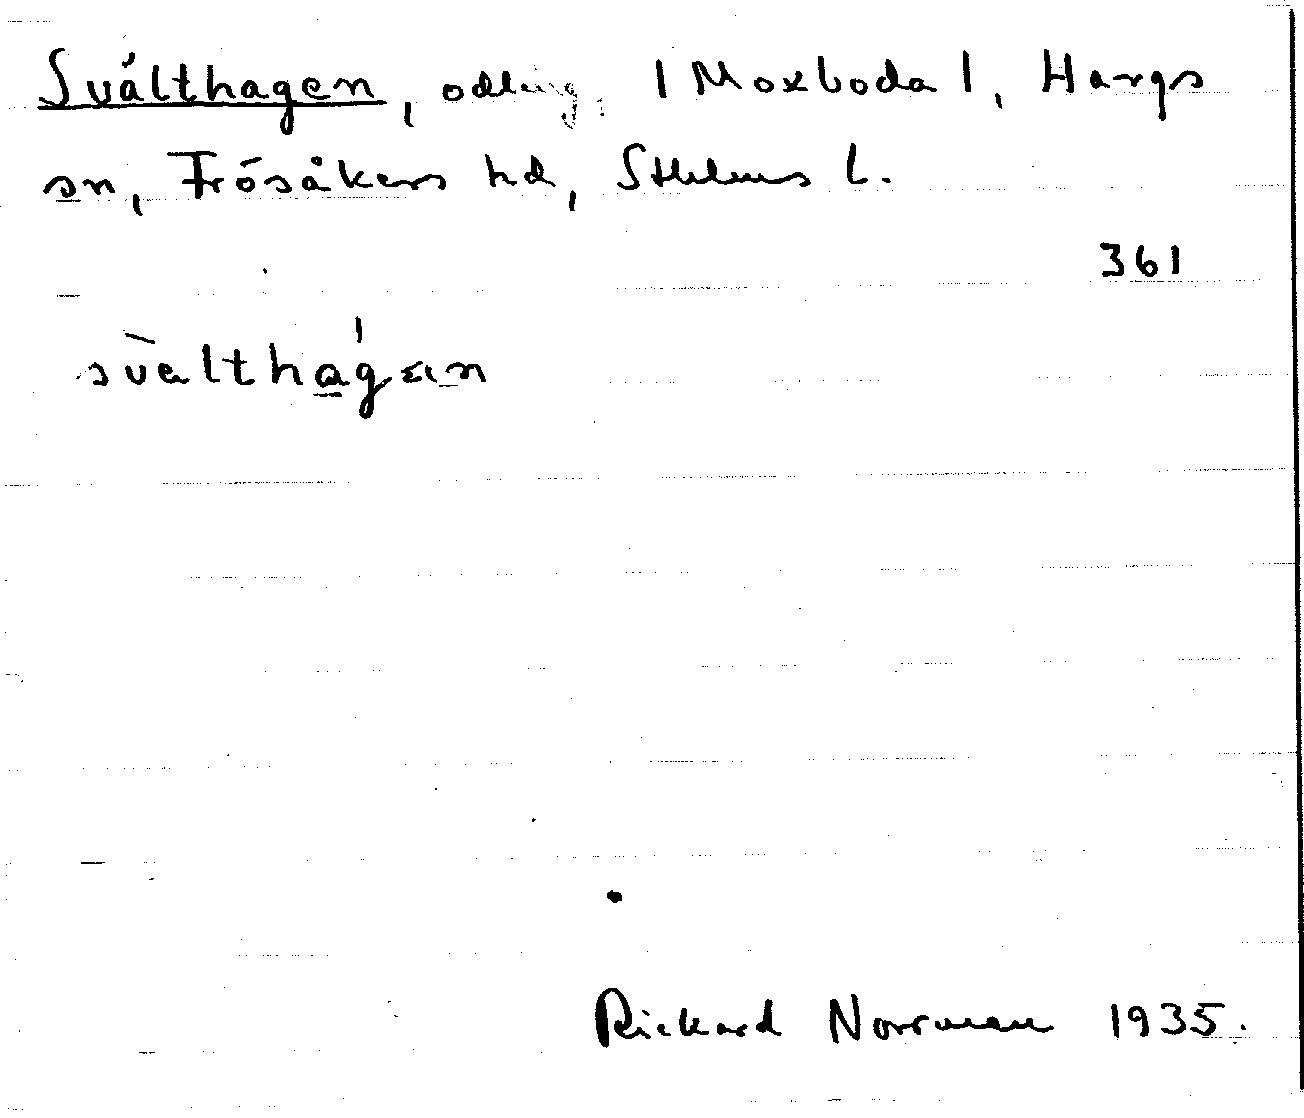 Svälthagen, odling, | Moxboda |, Hargs
sn, Frösåkers hd, Sthlms l.
361
svälthagan
Rickard Norrman 1935.